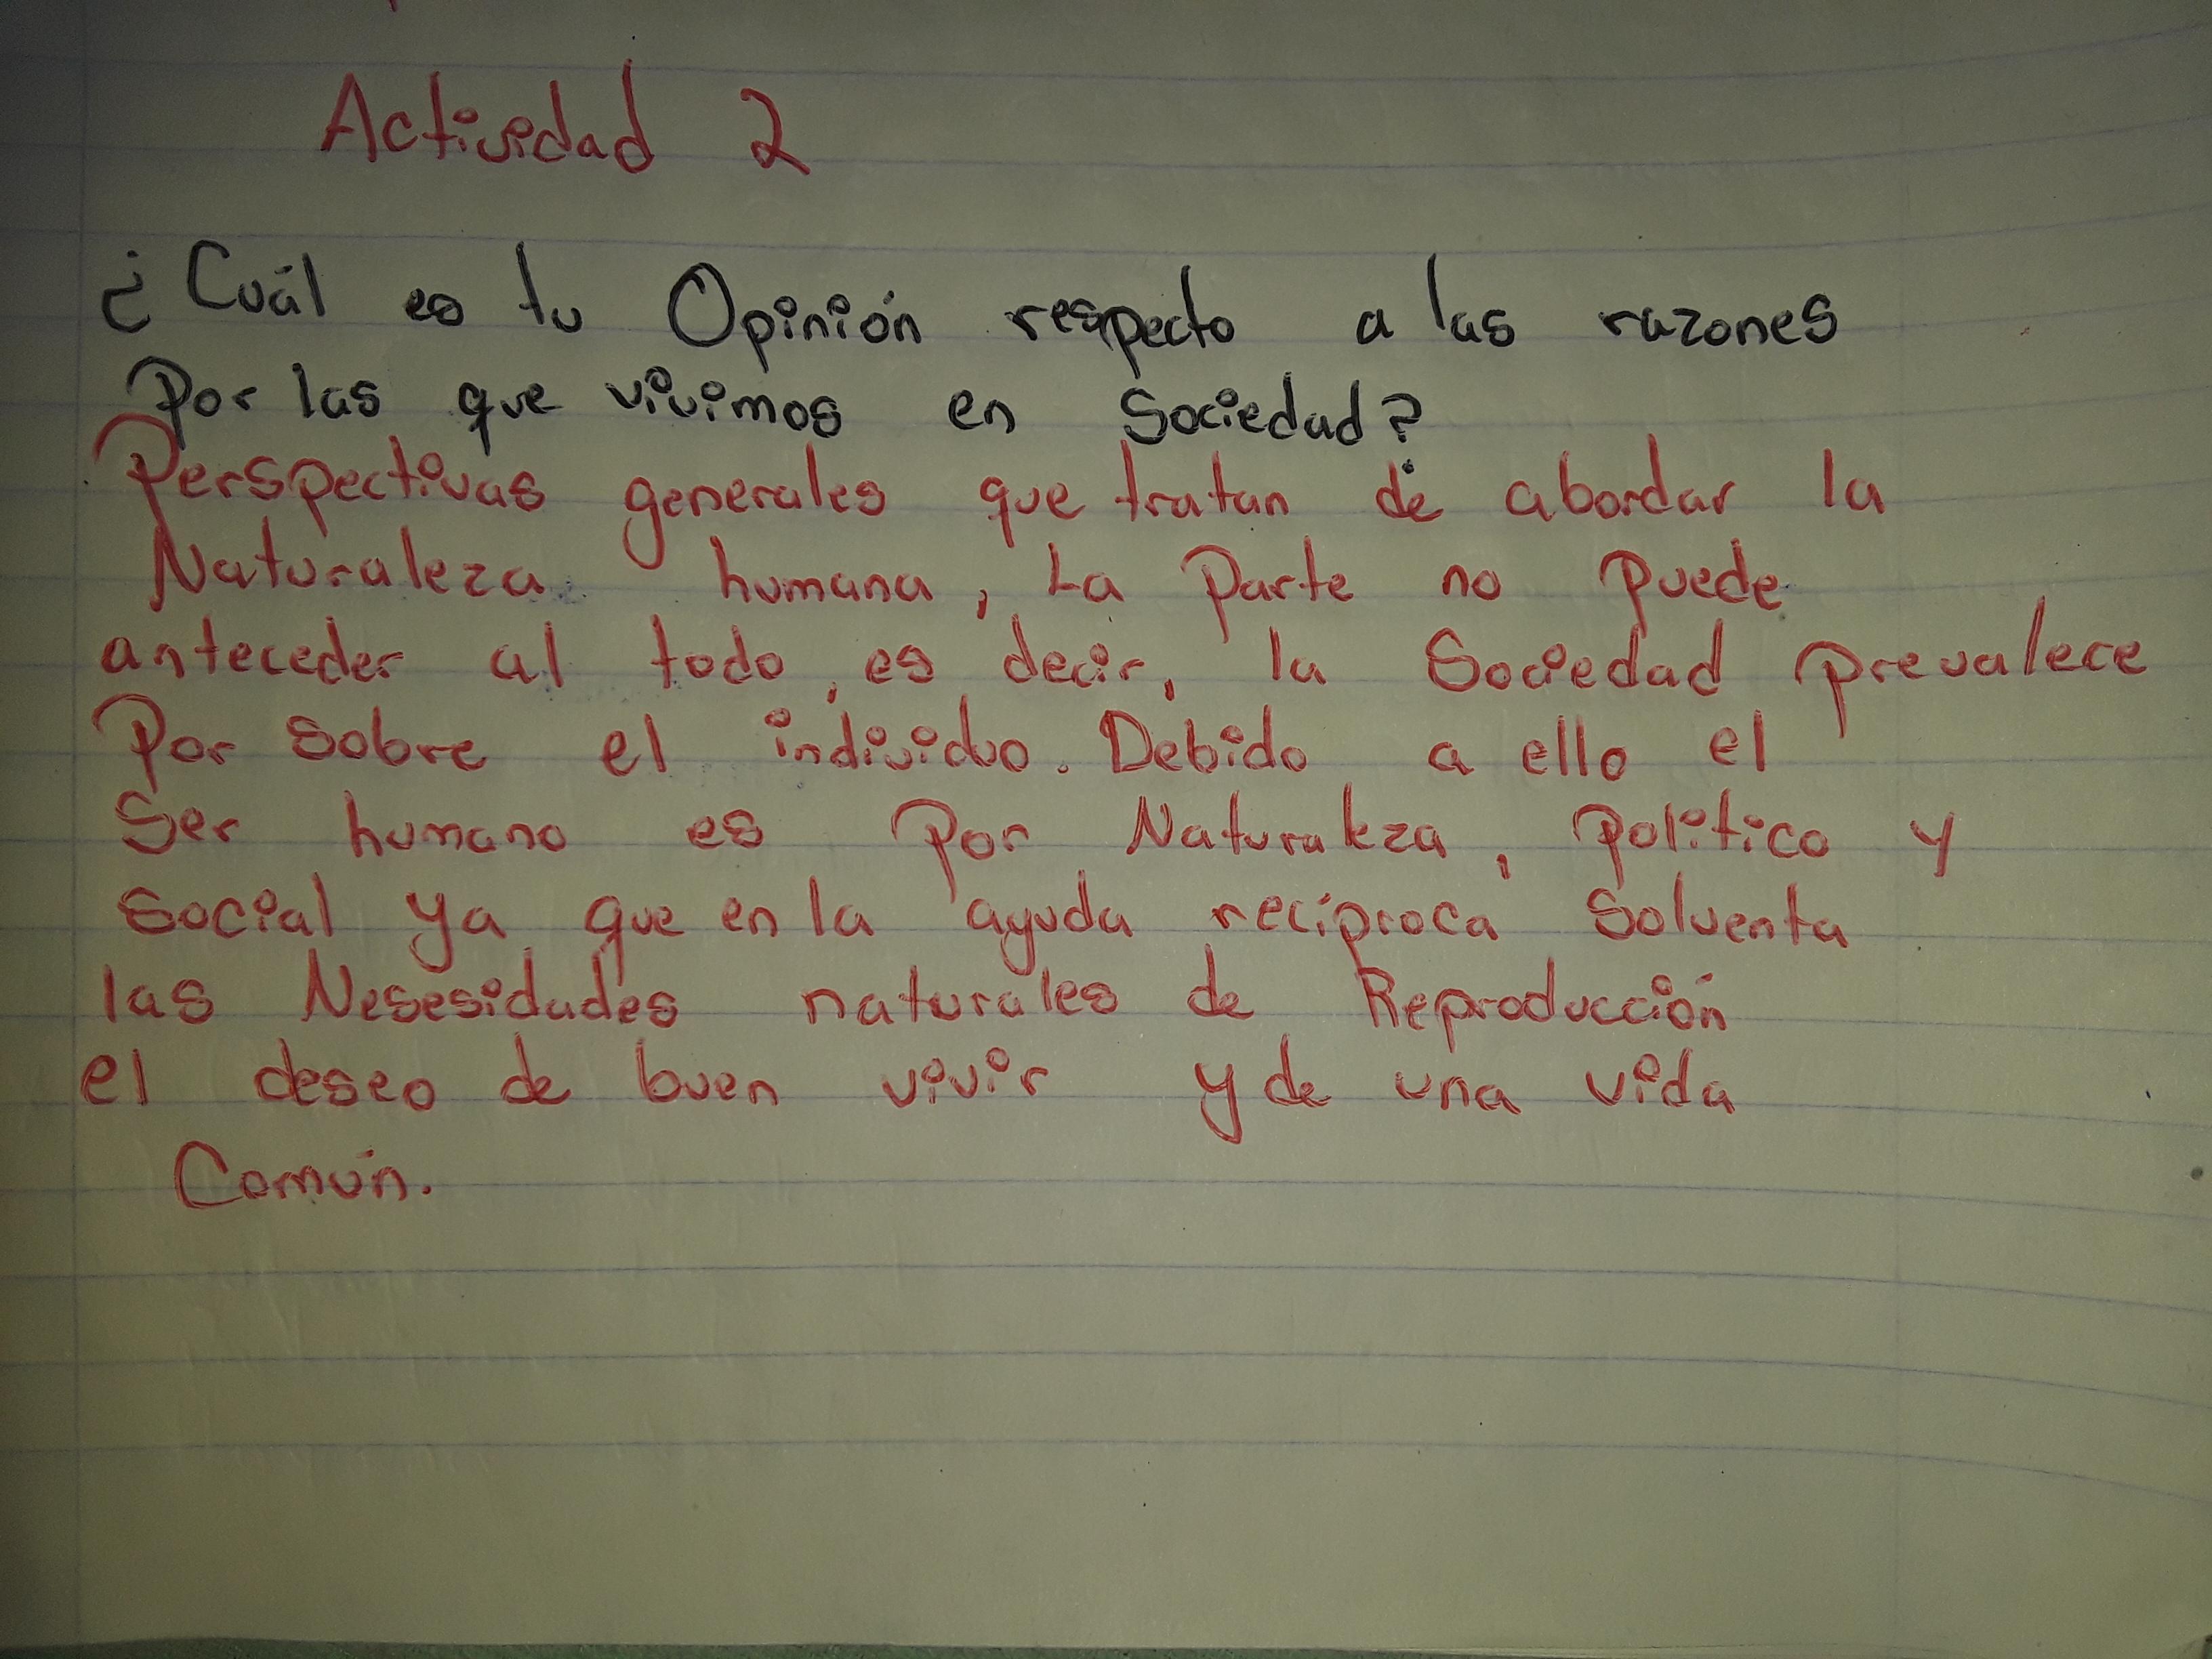 Actividad 2
¿Cuál es tu Opinión respecto a las razones
Por las que vivimos en Sociedad?
Perspectivas generales que tratan de abordar la
Naturaleza humana, La Parte no Puede
anteceder al todo, es decir, la Sociedad prevalece
Por sobre el individuo. Debido a ello el
Ser humano es Por Naturaleza, Político y
social ya que en la ayuda recíproca Solventa
las Nesesidades naturales de Reproducción
el deseo de buen vivir y de una vida
Común.